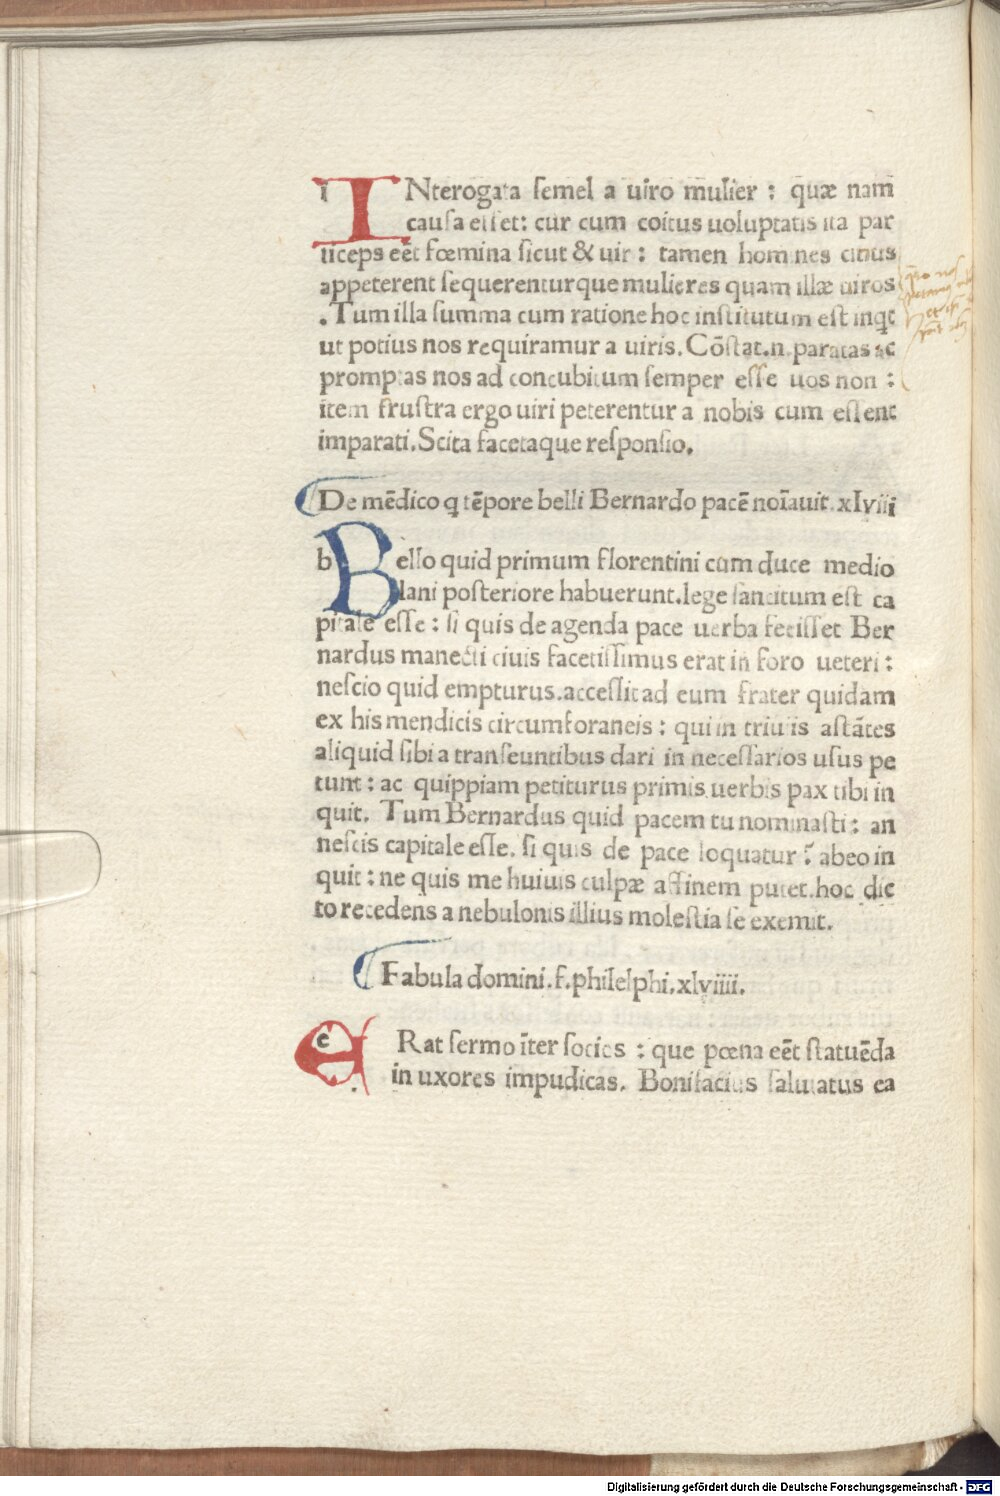 INterogata semel a uiro mulier : quæ nam
causa esset: cur cum coitus uoluptatis ita par
ticeps eēt fœmina sicut & uir : tamen homines citius
appeterent sequerenturque mulieres quam illæ uiros
.Tum illa summa cum ratione hoc institutum est inqt
ut potius nos requiramur a uiris. Cōstat.n.paratas ac
promptas nos ad concubitum semper esse uos non :
item frustra ergo uiri peterentur a nobis cum essent
imparati.Scita facetaque responsio.
De mēdico q tēpore belli Bernardo pacē noīauit.xlviii
Bello quid primum florentini cum duce medio
lani posteriore habuerunt.lege sancitum est ca
pitale esse : si quis de agenda pace uerba fecisset Ber
nardus manecti ciuis facetissimus erat in foro ueteri :
nescio quid empturus.accessit ad eum frater quidam
ex his mendicis circumforaneis : qui in triuiis astātes
aliquid sibi a transeuntibus dari in necessarios usus pe
tunt : ac quippiam petiturus primis uerbis pax tibi in
quit. Tum Bernardus quid pacem tu nominasti : an
nescis capitale esse. si quis de pace loquatur : abeo in
quit : ne quis me huiuis culpæ affinem putet.hoc dic
to recedens a nebulonis illius molestia se exemit.
Fabula domini.f.philelphi.xlviiii.
ERat sermo īter socios : que pœna eēt statuēda
in uxores impudicas. Bonifacius salutatus ea
Digitalisierung gefördert durch die Deutsche Forschungsgemeinschaft - DFG